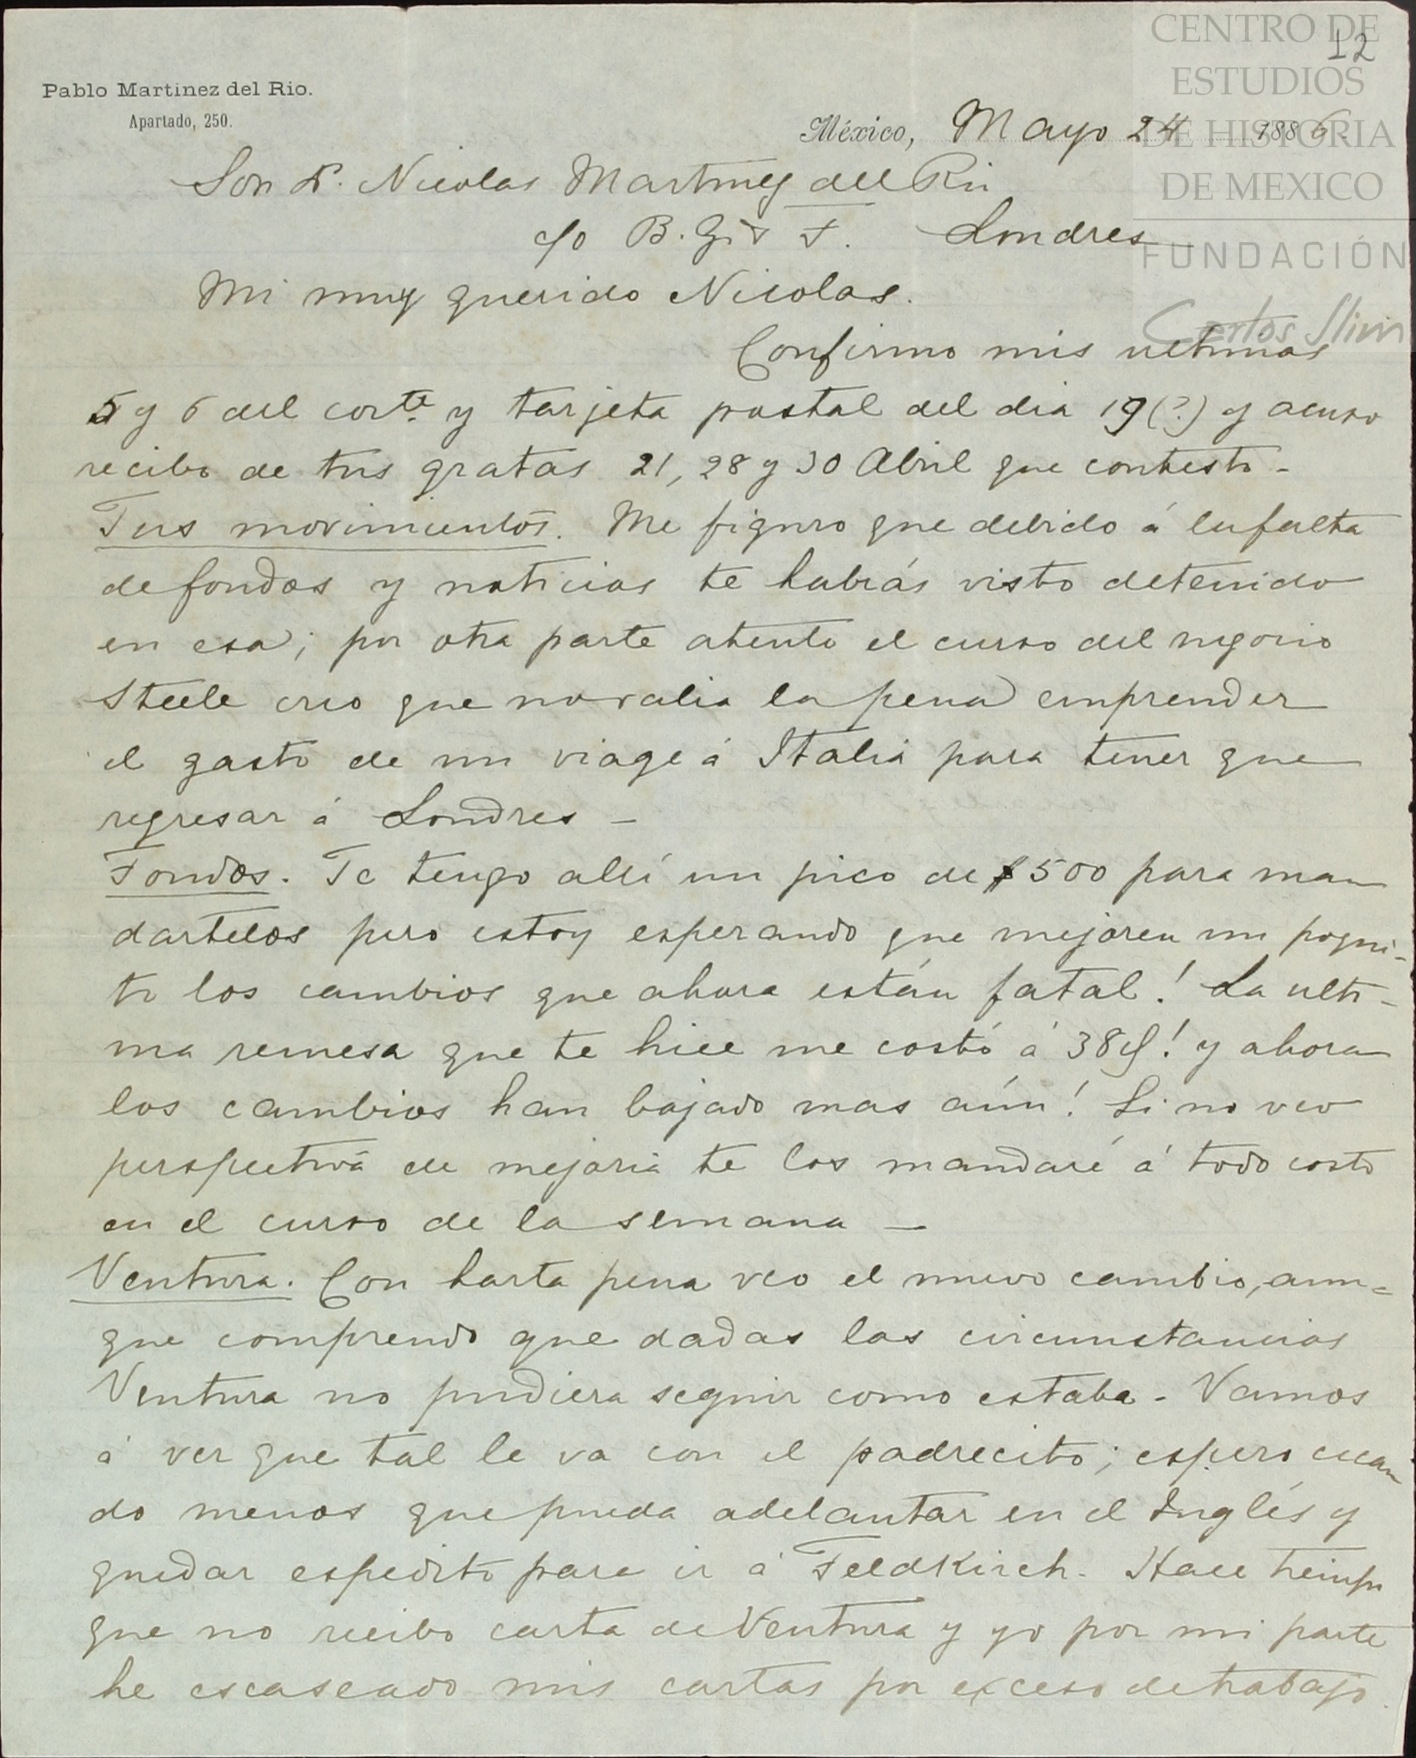 CENTRO DE
ESTUDIOS
DE HISTORIA
DE MEXICO
FUNDACIÓN
Carlos Slim
12
Pablo Martinez del Rio.
Apartado, 250.
México, Mayo 24 1886.
Sor D. Nicolas Martinez del Rio
c/o B. G. Londres
Mi muy querido Nicolas.
Confirmo mis ultimas
5 y 6 del corte. y tarjeta postal del dia 19 (?) y acuso
recibo de tus gratas 21, 28 y 30 Abril que contesto -
Tus movimientos. Me figuro que debido á la falta
de fondos y noticias te habrás visto detenido
en esa; por otra parte atento el curso del negocio
Steele creo que no valia la pena emprender
el gasto de un viage á Italia para tener que
regresar á Londres -
Fondos. Te tengo allí un pico de $500 para man
dartelos pero estoy esperando que mejoren un poqui-
to los cambios que ahora están fatal! La ulti-
ma remesa que te hice me costó á 38d! y ahora
los cambios han bajado mas aún! Si no veo
perspectiva de mejoria te los mandaré á todo costo
en el curso de la semana -
Ventura. Con harta pena veo el nuevo cambio, aun=
que comprendo que dadas las circunstancias
Ventura no pudiera seguir como estaba - Vamos
á ver que tal le va con el padrecito; espero cuan
do menos que pueda adelantar en el Inglés y
quedar espedito para ir á Feldkirch. Hace tiempo
que no recibo carta de Ventura y yo por mi parte
he escaseado mis cartas por exceso de trabajo.